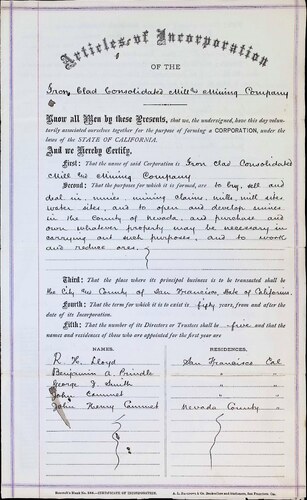 Articles of Incorporation
OF THE
Iron Clad Consolidated Mill & Mining Company
Know all Men by these Presents, That we, the undersigned, have this day voluntarily
associated ourselves together for the purpose of forming a CORPORATION, under the
laws of the STATE OF CALIFORNIA.
And we Hereby Certify,
First: That the name of said Corporation is Iron Clad Consolidated
Mill & Mining Company
Second: That the purposes for which it is formed, are to buy, sell and
deal in mines, mining claims, mills, mill sites,
water sites, and to open and develop mines
in the County of Nevada, and purchase and
own whatever property may be necessary in
carrying out such purposes, and to work
and reduce ores.
Third: That the place where its principal business is to be transacted shall be
the City & County of San Francisco, State of California.
Fourth: That the term for which it is to exist is fifty years, from and after the
date of its Incorporation.
Fifth: That the number of its Directors or Trustees shall be five, and that the
names and residences of those who are appointed for the first year are
NAMES. RESIDENCES.
R. H. Lloyd San Francisco Cal
Benjamin A. Prindle " "
George J. Smith " "
John " "
John Henry Nevada County "
CERTIFICATE OF INCORPORATION.